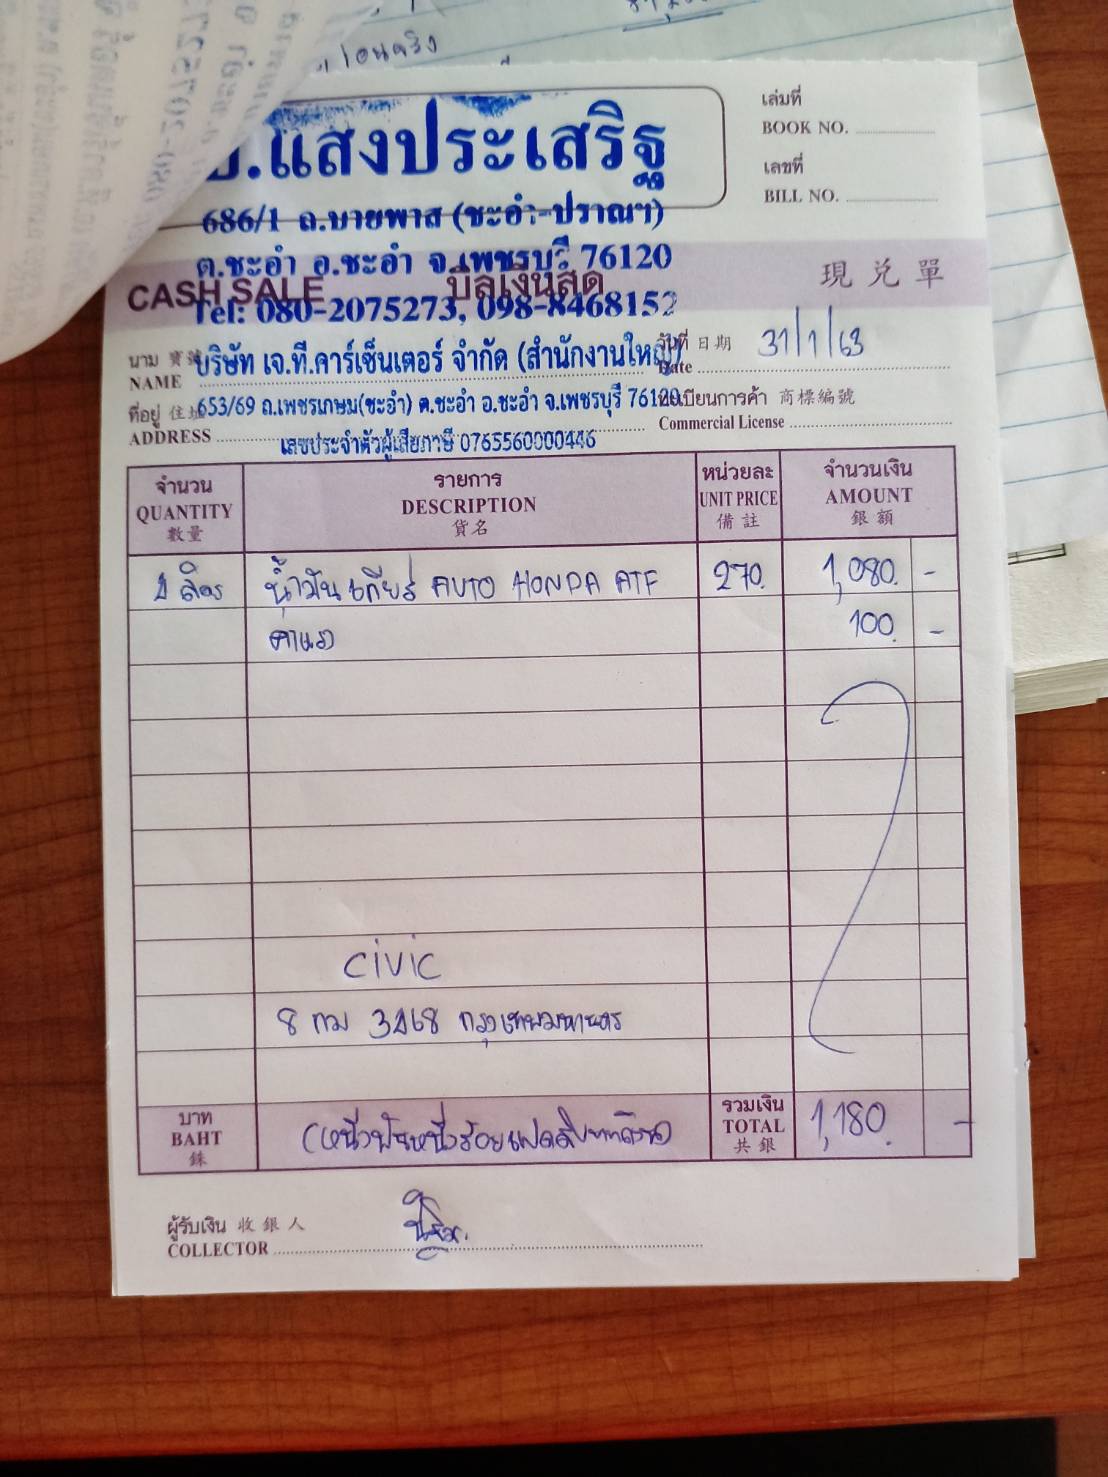 โอนจริง
เล่มที่
BOOK NO.
เลขที่
BILL NO.
.แสงประเสริฐ
686/1 ถ.บายพาส (ชะอำ-ปราณฯ)
ต.ชะอำ อ.ชะอำ จ.เพชรบุรี 76120
CASH SALE บิลเงินสด 現兌單
Tel: 080-2075273, 098-8468152
วันที่ 日期 Date 31/1/63
นาม NAME บริษัท เจ.ที.คาร์เซ็นเตอร์ จำกัด (สำนักงานใหญ่)
ที่อยู่ 住址 ADDRESS 653/69 ถ.เพชรเกษม(ชะอำ) ต.ชะอำ อ.ชะอำ จ.เพชรบุรี 76120
ทะเบียนการค้า 商標編號
Commercial License
เลขประจำตัวผู้เสียภาษี 0765560000446
จำนวน รายการ หน่วยละ จำนวนเงิน
QUANTITY DESCRIPTION UNIT PRICE AMOUNT
數量 貨名 備註 銀額
4 ลิตร น้ำมันเกียร์ AUTO HONDA ATF 270. 1,080. -
ค่าแรง 100. -
civic
8 กม 3468 กรุงเทพมหานคร
บาท BAHT 銖 (หนึ่งพันหนึ่งร้อยแปดสิบบาทถ้วน) รวมเงิน TOTAL 共銀 1,180. -
ผู้รับเงิน 收銀人
COLLECTOR